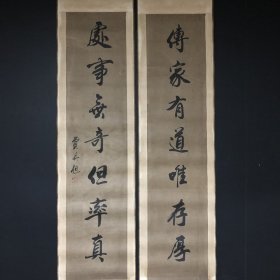 傳家有道唯存厚
處事無奇但率真